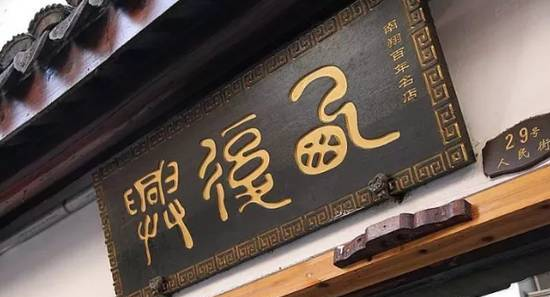 南翔百年名店
復興
29号
人民街